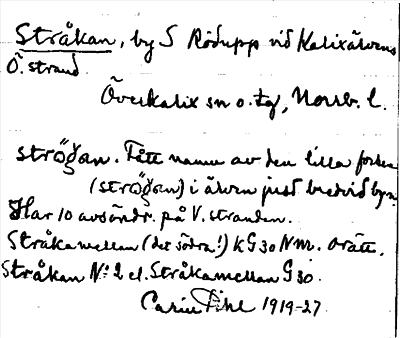 Stråkan, by S Rödupp vid Kalixälvens
Ö. strand
Överkalix sn o. tg, Norrb. l.
strög̃an. Fått namn av den lilla forsen
(strög̃an) i älven just bredvid byn.
Har 10 avsöndr. på V. stranden.
Stråkamellan (det södra!) KG 30 NM. orätt.
Stråkan N:o 2 el. Stråkamellan G 30.
Carin Pihl 1919-27